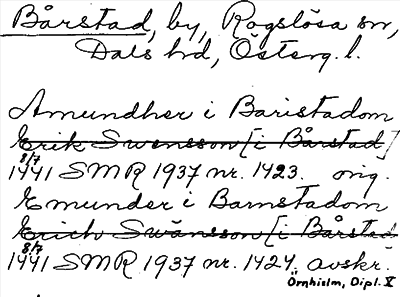 Bårstad, by, Rogslösa sn,
Dals hd, Österg. l.
Amundher i Baristadom
Erik Swensson [i Bårstad]
8/7
1441 SMR 1937 nr. 1423. orig.
Emunder i Barnstadom
Erich Swänsson [i Bårstad
8/7
1441 SMR 1937 nr. 1424. avskr.
Örnhielm, Dipl. V